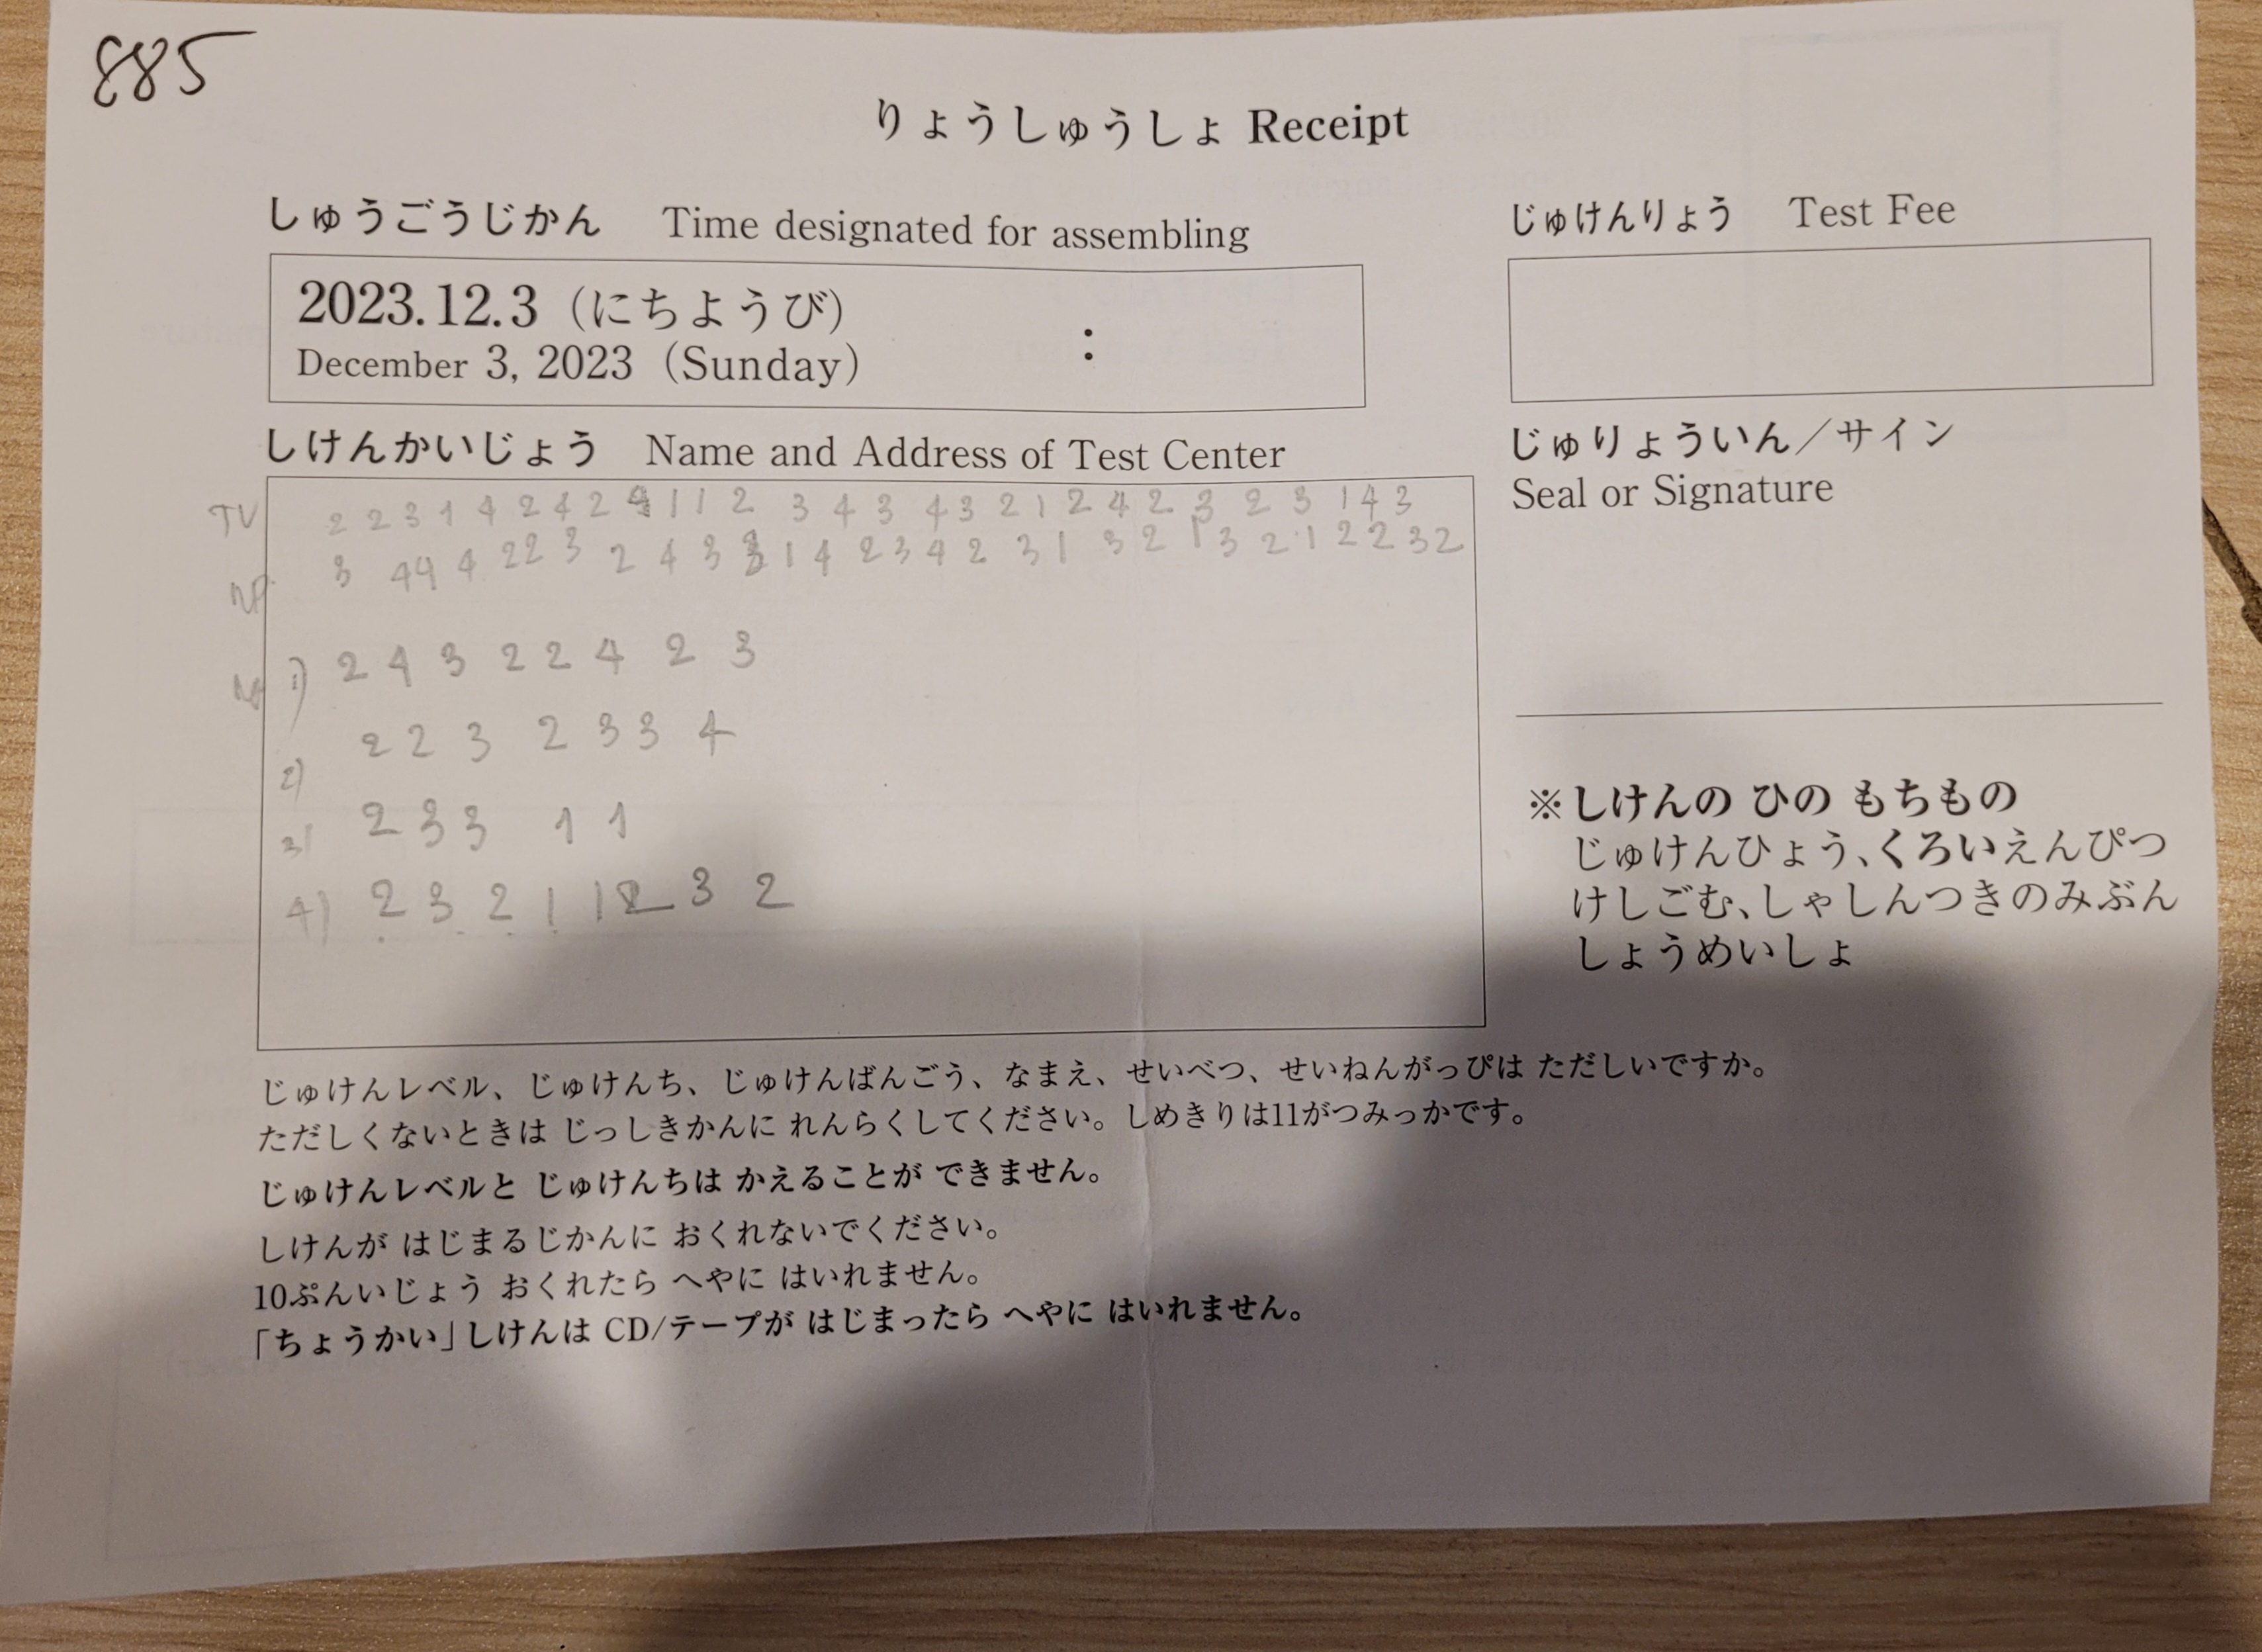 885
りょうしゅうしょ Receipt
しゅうごうじかん Time designated for assembling
2023.12.3（にちようび）
December 3, 2023（Sunday） :
じゅけんりょう Test Fee
しけんかいじょう Name and Address of Test Center
TV 2 2 3 1 4 2 4 2 4 1 1 2 3 4 3 4 3 2 1 2 4 2 3 2 3 1 4 3
NP 3 4 4 4 2 2 3 2 4 3 3 1 4 2 3 4 2 3 1 3 2 1 3 2 1 2 2 3 2
1) 2 4 3 2 2 4 2 3
2) 2 2 3 2 3 3 4
3) 2 3 3 1 1
4) 2 3 2 1 1 2 3 2
じゅりょういん／サイン
Seal or Signature
※しけんの ひの もちもの
じゅけんひょう、くろいえんぴつ
けしごむ、しゃしんつきのみぶん
しょうめいしょ
じゅけんレベル、じゅけんち、じゅけんばんごう、なまえ、せいべつ、せいねんがっぴは ただしいですか。
ただしくないときは じっしきかんに れんらくしてください。しめきりは11がつみっかです。
じゅけんレベルと じゅけんちは かえることが できません。
しけんが はじまるじかんに おくれないでください。
10ぷんいじょう おくれたら へやに はいれません。
「ちょうかい」しけんは CD/テープが はじまったら へやに はいれません。